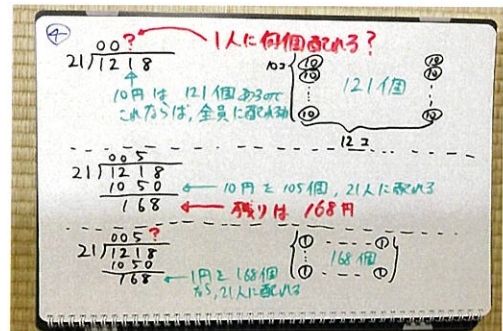 ④
00?
21)1218
1人に何個配れる?
10円は 121個あるので
これならば、全員に配れる
10コ
10 10
10 10
121個
10 10
12コ
005
21)1218
1050
168
← 10円を105個, 21人に配れる
← 残りは 168円
005?
21)1218
1050
168
← 1円を168個
なら, 21人に配れる
① - - - - ①
168個
① - - - - ①